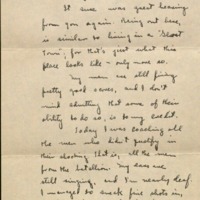 It sure was great hearing
from you again. Being out here,
is similar to living in a "Ghost
Town", for that's just what this
place looks like - only more so.
My men are still firing
pretty good scores, and I don't
mind admitting that some of their
ability to do so, is to my credit.
Today I was coaching all
the men who didn't qualify in
their shooting that is, all the men
from the battalion. My ears are
still ringing, and I'm nearly deaf.
I managed to sneak five shots in,